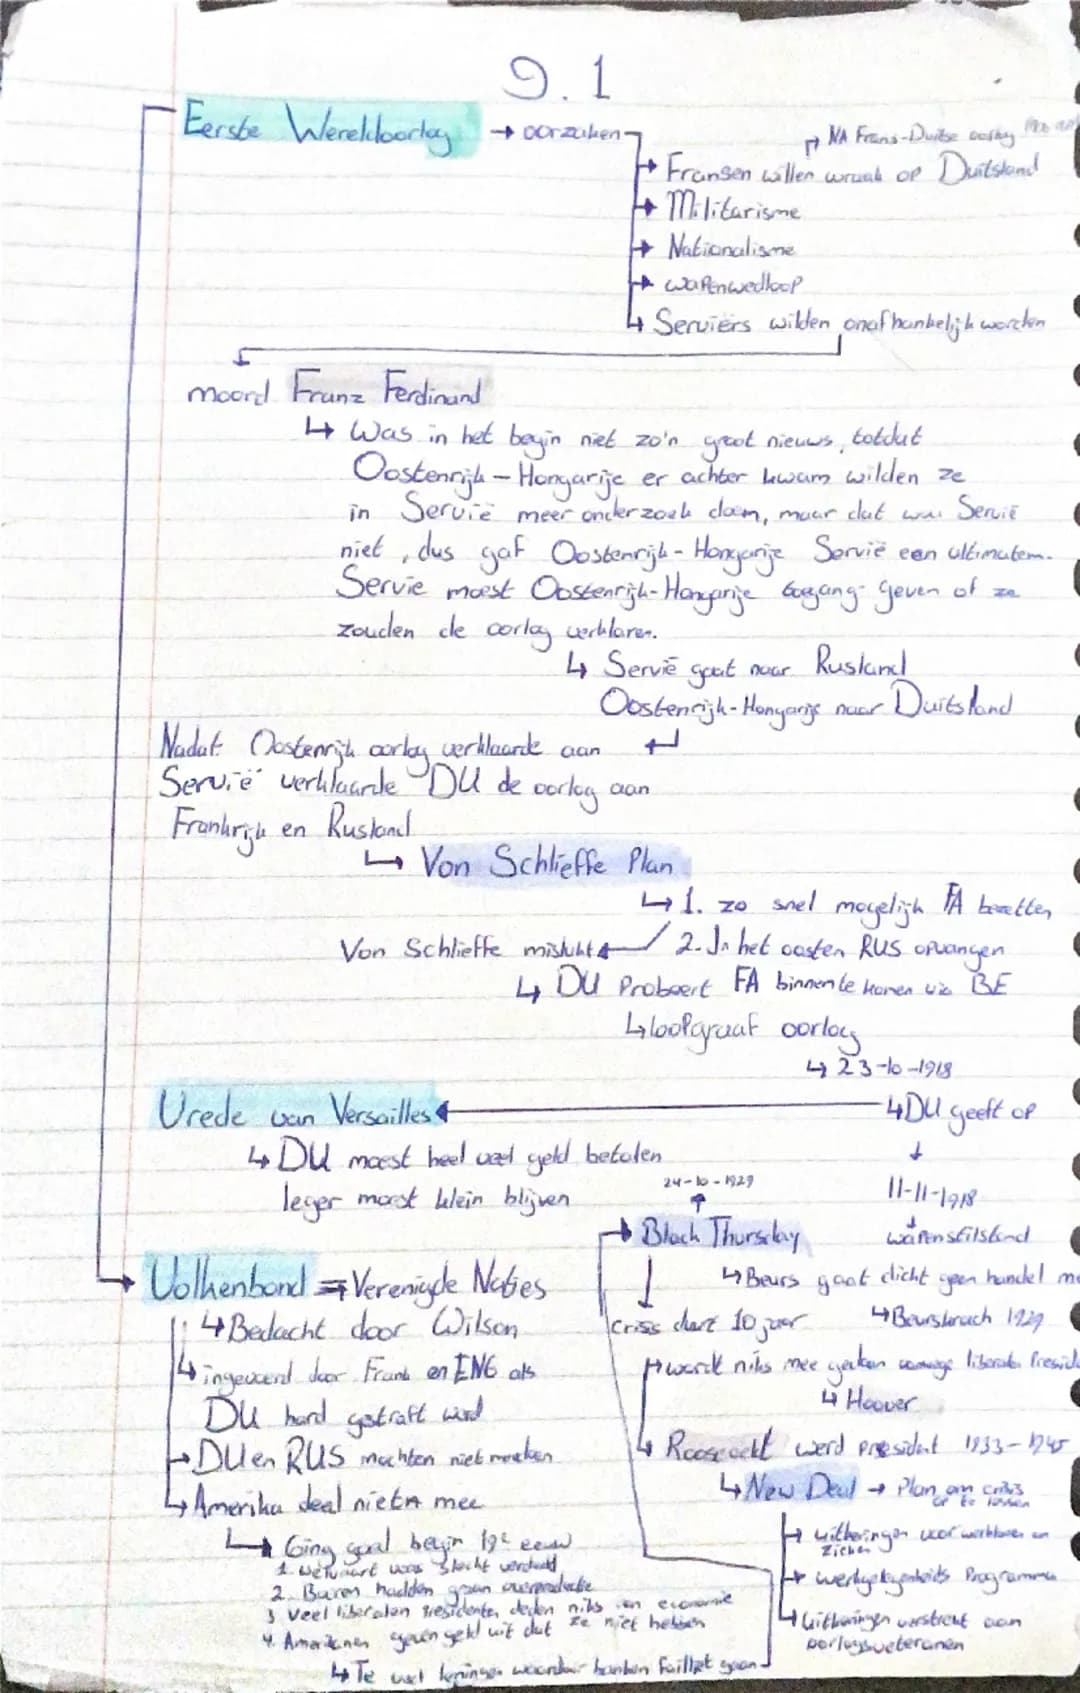 9.1
Eerste Wereldoorlog → oorzaken
NA Frans-Duitse oorlog
Fransen willen wraak op Duitsland
Militarisme
Nationalisme
wapenwedloop
Serviërs wilden onafhankelijk worden
moord Franz Ferdinand
Was in het begin niet zo'n groot nieuws, totdat
Oostenrijk-Hongarije er achter kwam wilden ze
in Servië meer onderzoek doen, maar dat wou Servië
niet, dus gaf Oostenrijk-Hongarije Servië een ultimatem.
Servie moest Oostenrijk-Hongarije toegang geven of ze
zouden de oorlog verklaren.
Servië gaat naar Rusland
Oostenrijk-Hongarije naar Duitsland
Nadat Oostenrijk oorlog verklaarde aan
Servië verklaarde DU de oorlog aan
Frankrijk en Rusland
Von Schlieffe Plan
1. zo snel mogelijk FA bezetten
2. In het oosten RUS opvangen
Von Schlieffe mislukt
DU Probeert FA binnen te komen via BE
loopgraaf oorlog
23-10-1918
DU geeft op
Vrede van Versailles
DU moest heel veel geld betalen
leger moest klein blijven
11-11-1918
wapenstilstand
24-10-1929
Black Thursday
Beurs gaat dicht geen handel me
Beurskrach 1929
crisis duurt 10 jaar
wordt niks mee gedaan vanwege liberale Presid
Hoover
Roosevelt werd president 1933-1945
New Deal → Plan om crisis
op te lossen
uitkeringen voor werklozen en
zieken
werkgelegenheids Programma
Uitkeringen verstrekt aan
oorlogsveteranen
Volkenbond = Verenigde Naties
Bedacht door Wilson
ingevoerd door Frank en ENG als
DU hard gestraft wird
DU en RUS mochten niet meedoen
Amerika deed niet mee
Ging goed begin 19e eeuw
1. Welvaart was slecht verdeeld
2. Boeren hadden geen overproductie
3 Veel liberalen Presidenten deden niks aan economie
4. Amerikanen gaven geld uit dat ze niet hebben
Te veel leningen waardoor banken failliet gaan